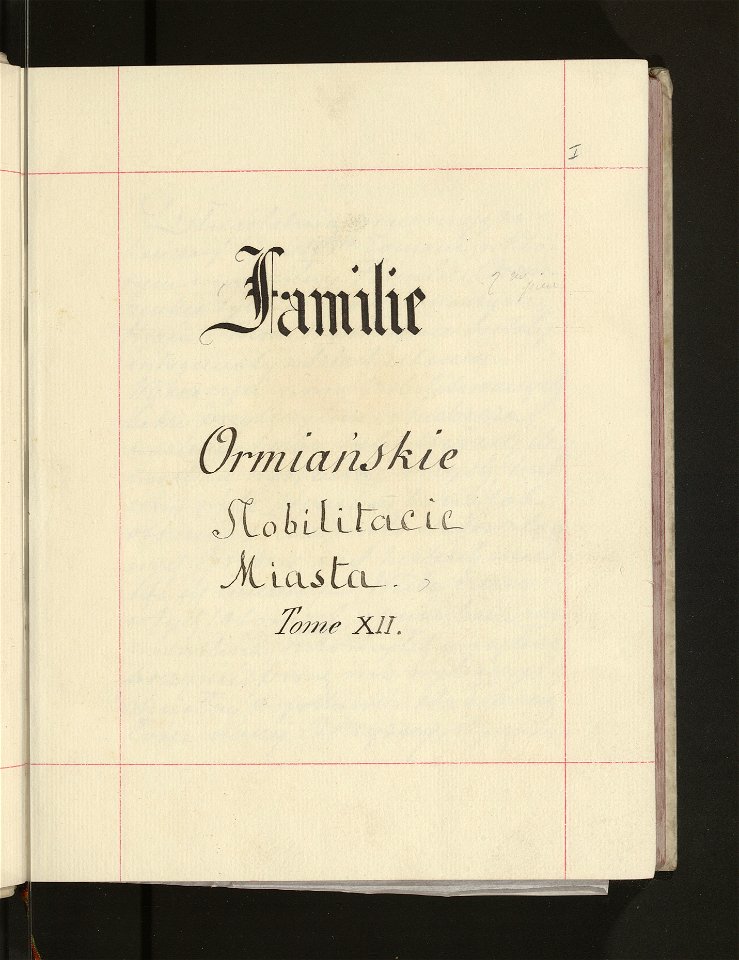 I
Familie
Ormiańskie
Nobilitacie
Miasta.
Tome XII.